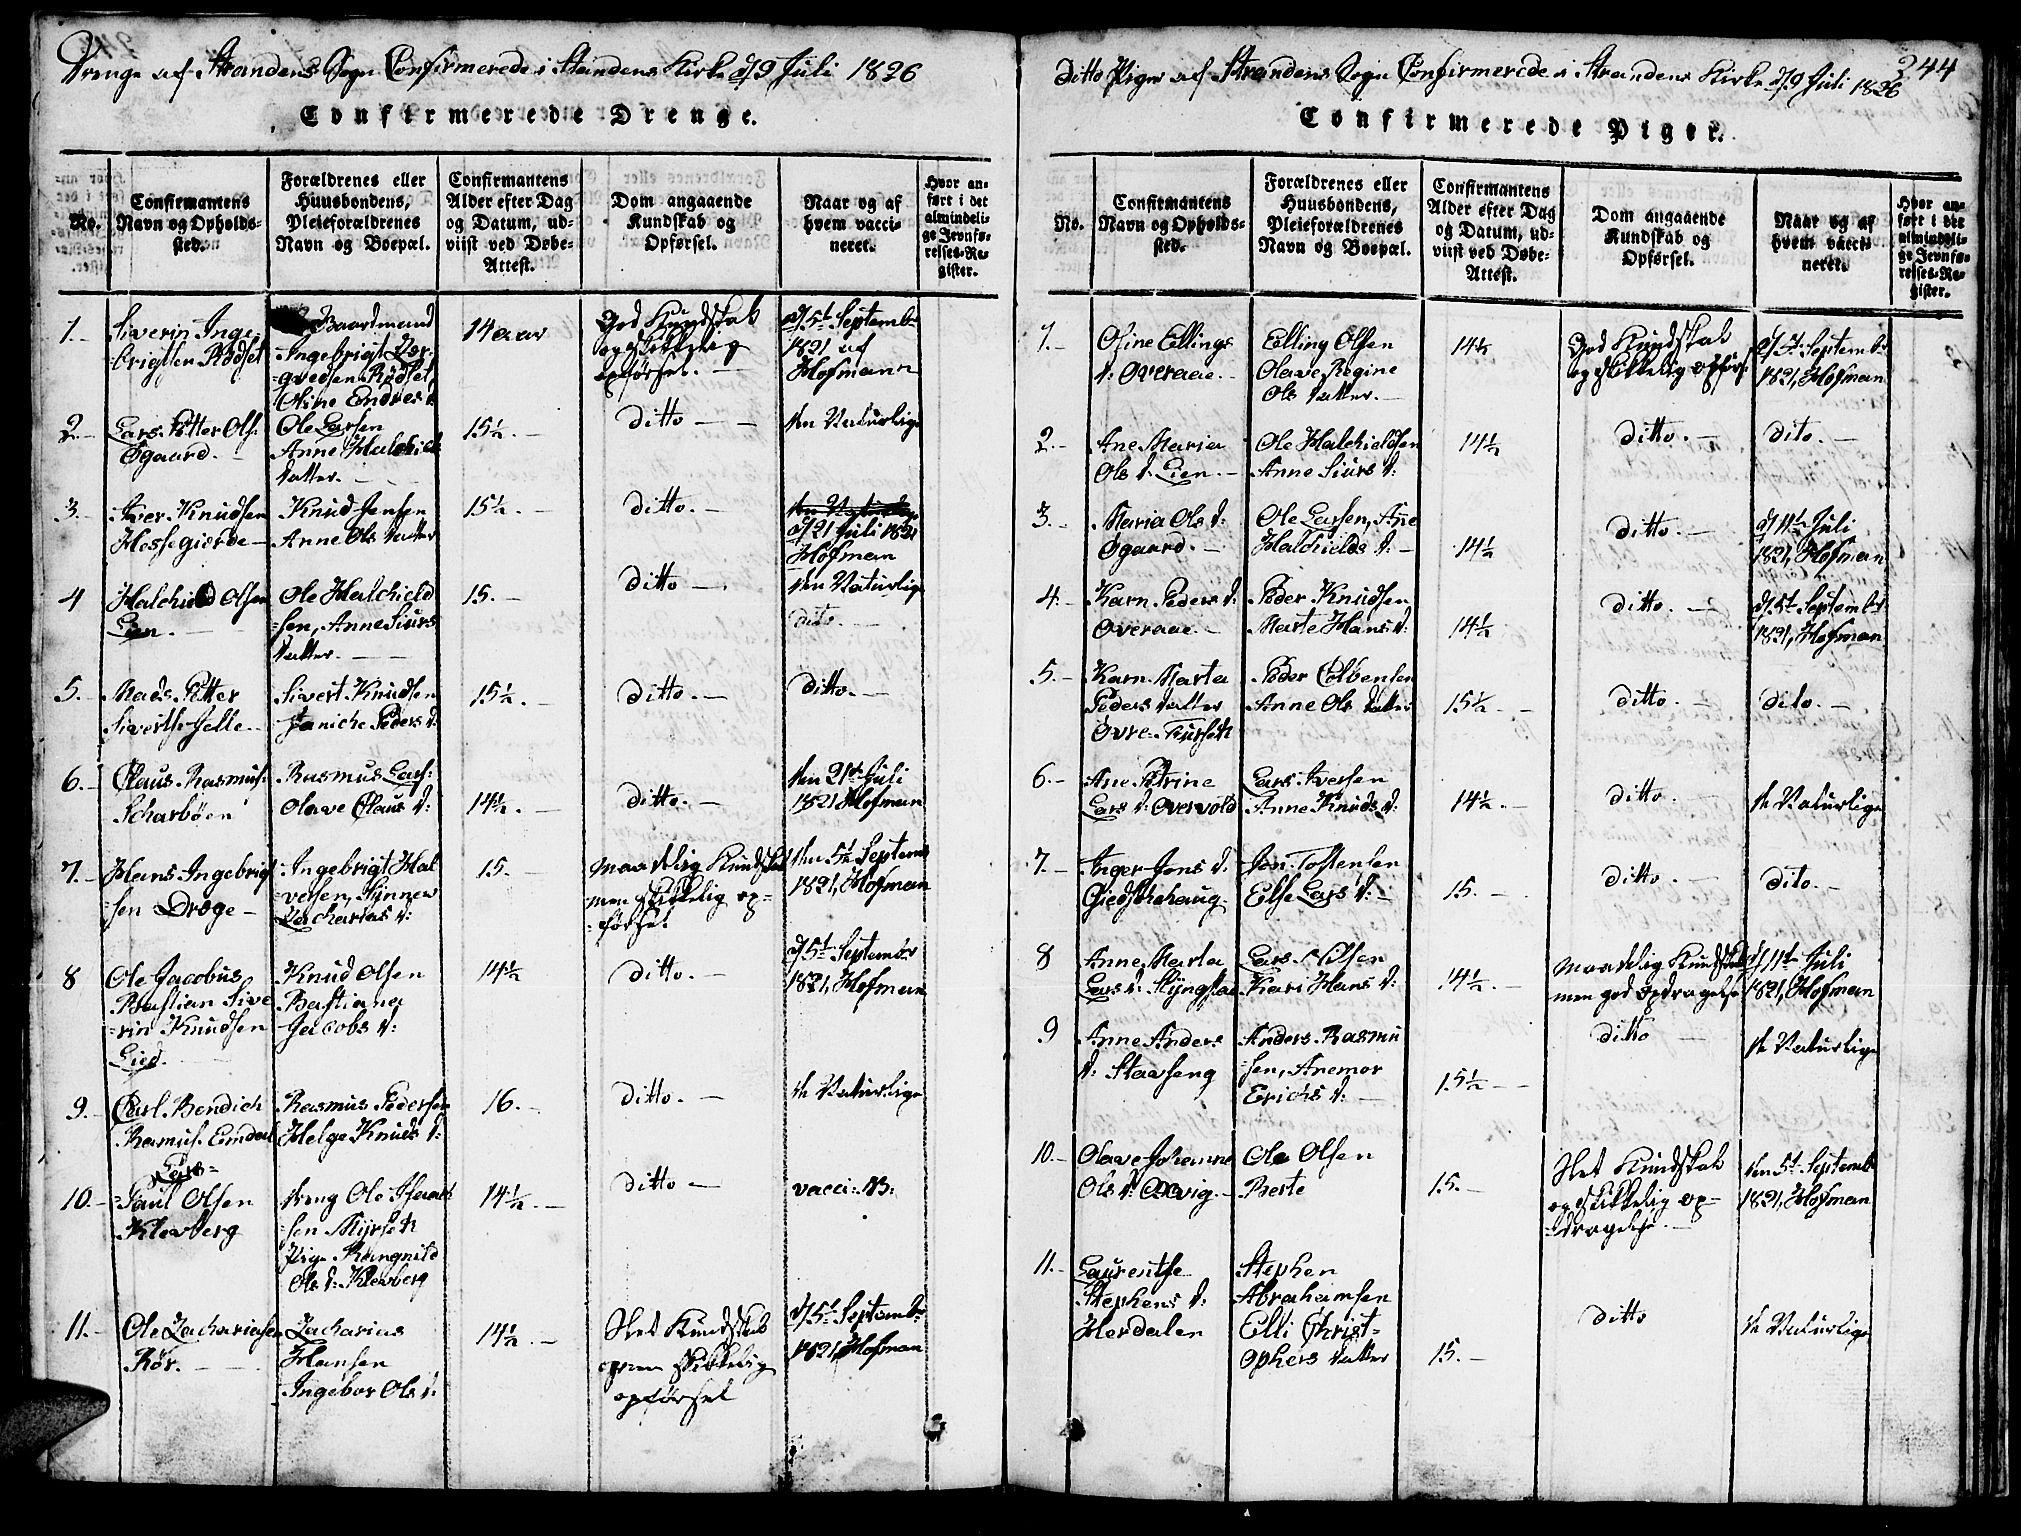 Drenge af Strandens Sogn Confirmerede i Strandens Kirke d/9 Juli 1826
Confirmerede Drenge.
No.
Confirmantens
Navn og Opholds-
sted.
Forældrenes eller
Huusbondens,
Pleieforældrenes
Navn og Boepæl.
Confirmantens
Alder efter Dag
og Datum, ud-
viist ved Døbe-
Attest.
Dom angaaende
Kundskab og
Opførsel.
Naar og af
hvem vacci-
neret.
Hvor an-
ført i det
almindeli-
ge Jevnfø-
relses-Re-
gister.
1.
Siverin Inge-
brigtsen Rødset
Baardmand
Ingebrigt
Rødset
Oline Endres d:
14 aar
God Kundskab
og skikkelig
opførsel.
d/5t Septembr
1821 af
Hofmann
2.
Lars Petter Ols:
Øgaard.
Ole Larsen
Anne Halchields
datter.
15½.
ditto
den Naturlige
3.
Iver Knudsen
Hessegierde
Knud Jensen
Anne Ols datter
15½.
ditto.
d/21 Juli 1821
Hofman
4
Halchield Olsen
Lien.
Ole Halchield
-sen, Anne Siurs
datter.
15.
ditto
den Naturlige
dito.
5.
Mads Petter
Siverts: Helle
Sivert Knudsen
Janiche Peders d:
15½.
ditto.
ditto.
6.
Claus Rasmus:
Scharbøen
Rasmus Lars:
Olave Claus d:
14½.
ditto.
den 21de Juli
1821 Hofman
7.
Hans Ingebrigt
-sen Drøge
Ingebrigt Hal
versen, Synnev
Zacharias d:
15.
maadelig Kundskab
men skikkelig op-
-førsel
den 5te Septemb
1821, Hofman
8
Ole Jacobus
Bastian Sive
-rin Knudsen
Lied.
Knud Olsen
Bastiana
Jacobs d:
14½
ditto.
d/5t Septembr
1821, Hofman
9.
Carl Bendich
Rasmus: Emdal
Rasmus Pedersen
Helge Knuds d:
16.
ditto.
de Naturlige
10.
Lars-
Paul Olsen
Klevberg
dreng Ole Isaach
-sen Myrseth
Pige Rangnild
Ols d: Klevberg
14½.
ditto
vacci: B:
11.
Ole Zachariasen
Rør.
Zacharias
Hansen
Ingebor Ols d:
14½.
Slet Kundskab
men skikkelig
opførsel
d/5t Septembr
1821, Hofman
244
Ditto Piger af Strandens Sogn Confirmerede i Strandens Kirke d/9 Juli 1826
Confirmerede Piger.
No.
Confirmantens
Navn og Opholds-
sted.
Forældrenes eller
Huusbondens,
Pleieforældrenes
Navn og Boepæl.
Confirmantens
Alder efter Dag
og Datum, ud-
viist ved Døbe-
Attest.
Dom angaaende
Kundskab og
Opførsel.
Naar og af
hvem vacci-
neret.
Hvor an-
ført i det
almindeli-
ge Jevnfø-
relses-Re-
gister.
1.
Oline Ellings
d: Overaae.
Elling Olsen
Olave Regine
Ols datter.
14½
God Kundskab
og skikkelig opførs:
d/5t Septembr
1821, Hofman
2.
Ane Maria
Ols d: Lien.
Ole Halchieldsen
Anne Siurs d:
14½
ditto.
dito.
3.
Maria Ols d:
Øgaard.
Ole Larsen, Ane
Halchields d:
14½
ditto.
d/11te Juli
1821, Hofman
4.
Karn Peders d:
Overaae.
Peder Knudsen
Marte Hans d:
14½
ditto.
d/5t Septembr
1821, Hofman
5.
Karn Marta
Peders datter
Øvre-Furseth
Peder Colbensen
Anne Ols datter
15½.
ditto.
dito.
6.
Ane Petrine
Lars d: Overvold
Lars Iversen
Anne Knuds d:
14½.
ditto.
de Naturlige
7.
Inger Jons d:
Giedschehaug.
Jon Tostensen
Else Lars d:
15.
ditto.
dito.
8
Anne Marta
Lars d: Slyngstad
Lars Olsen
Kari Hans d:
14½.
maadelig Kundskab
men god opdragelse
d/11te Juli
1821, Hofman
9
Anne Anders
d: Stavseng
Anders Rasmu
-sen, Anemor
Erichs d:
15½
ditto
de Naturlige
10.
Olave Johanne
Ols d: Ovavig.
Ole Olsen
Berte
15.
Slet Kundskab
og skikkelig op-
-dragelse
den 5t Septembr
1821, Hofman
11.
Laurentse
Stephens d:
Herdalen
Stephen
Abrahamsen
Elli Christ-
ophers datter
15.
ditto
de Naturlige